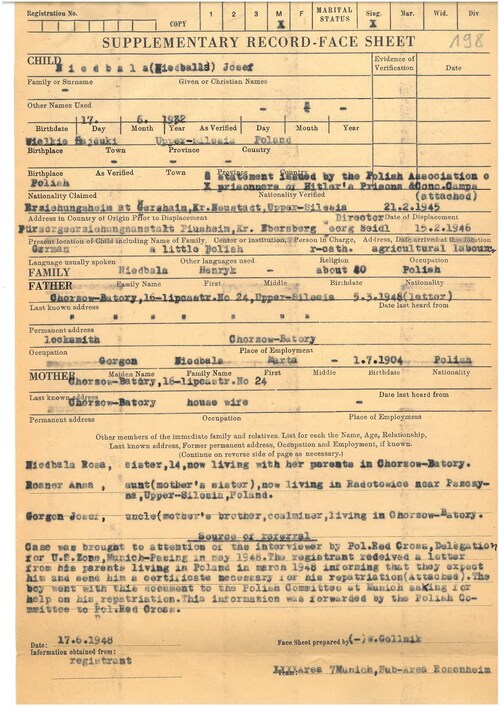 Registration No. COPY 1 2 3 M F MARITAL STATUS Sing. Mar. Wid. Div.
X X
SUPPLEMENTARY RECORD-FACE SHEET 198
CHILD Niedbala(Niedballa) Josef Evidence of Verification Date
Family or Surname Given or Christian Names
- 
Other Names Used - -
17. 6. 1932
Birthdate Day Month Year As Verified Day Month Year
Wielkie Hajduki Upper-Silesia Poland
Birthplace Town Province Country
Birthplace As Verified Town Province Country
Polish & statement issued by the Polish Association o
X prisonners of Hitler's Prisons &Conc.Camps
Nationality Claimed (attached)
Erziehungsheim at Kr.Neustadt,Upper-Silesia 21.2.1945
Address in Country of Origin Prior to Displacement Director Date of Displacement
Fürsorgeerziehungsanstalt Piusheim,Kr. Ebersberg Georg Seidl 15.2.1946
Present location of Child including Name of Family, Center or institution, Person in Charge, Address, Date arrived at this location
German a little Polish r-cath. agricultural labour.
Language usually spoken Other languages used Religion Occupation
FAMILY Niedbala Henryk - about 50 Polish
FATHER Family Name First Middle Birthdate Nationality
Chorzow-Batory,16-lipcastr.No 24,Upper-Silesia 5.3.1948(letter)
Last known address Date last heard from
" " " " " "
Permanent address
locksmith Chorzow-Batory
Occupation Place of Employment
Gorgon Niedbala Marta - 1.7.1904 Polish
MOTHER Maiden Name Family Name First Middle Birthdate Nationality
Chorzow-Batory,16-lipcastr.No 24
Last known address Date last heard from
Chorzow-Batory house wire -
Permanent address Occupation Place of Employment
Other members of the immediate family and relatives. List for each the Name, Age, Relationship,
Last known address, Former permanent address, Occupation and Employment, if known.
(Continue on reverse side of page as necessary.)
Niedbala Rosa, sister,14,now living with her parents in Chorzow-Batory.
Rosner Anna, aunt(mother's sister),now living in Radotowice near
Upper-Silesia,Poland.
Gorgon Josef, uncle(mother's brother,coalminer,living in Chorzow-Batory.
Source of referral
Case was brought to attention of the interviewer by Pol.Red Cross,Delegation
for U.S.Zone,Munich-Pasing in may 1948.The registrant redeived a letter
from his parents living in Poland in march 1948 informing that they expect
him and send him a certificate necessary for his repatriation(Attached).The
boy went with this document to the Polish Committee at Munich asking for
help on his repatriation.This information was forwarded by the Polish Co-
mmittee to Pol.Red Cross.
Date: 17.6.1948 Face Sheet prepared by (-)W.Gollnik
Information obtained from:
registrant Team: XXXXArea 7Munich,Sub-Area Rosenheim